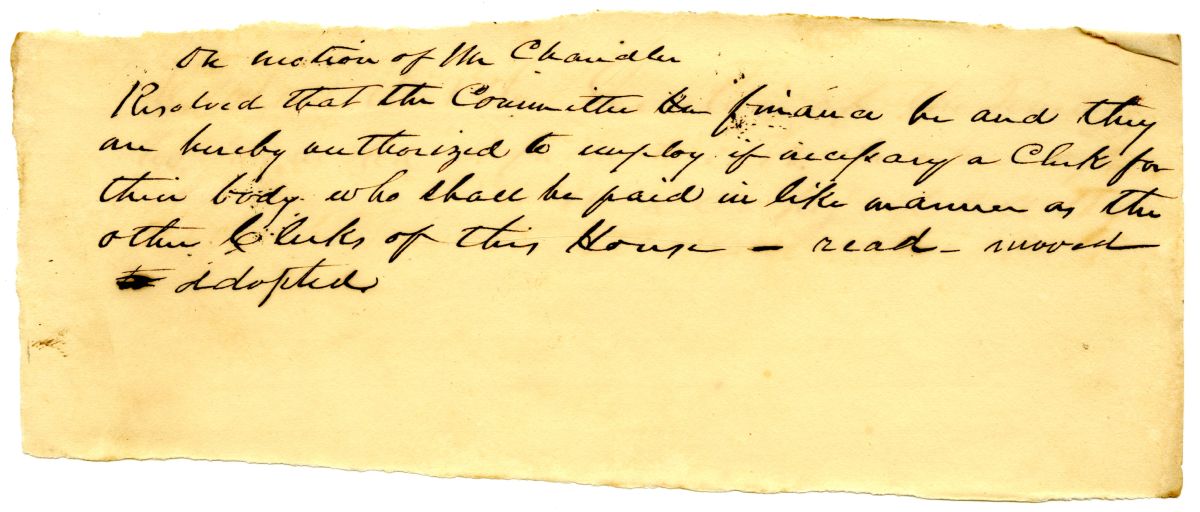 On motion of Mr Chandler
Resolved that the Committee on finance be and they
are hereby authorized to employ if necessary a Clerk for
their body who shall be paid in like manner as the
other Clerks of this House – read – moved
& adopted